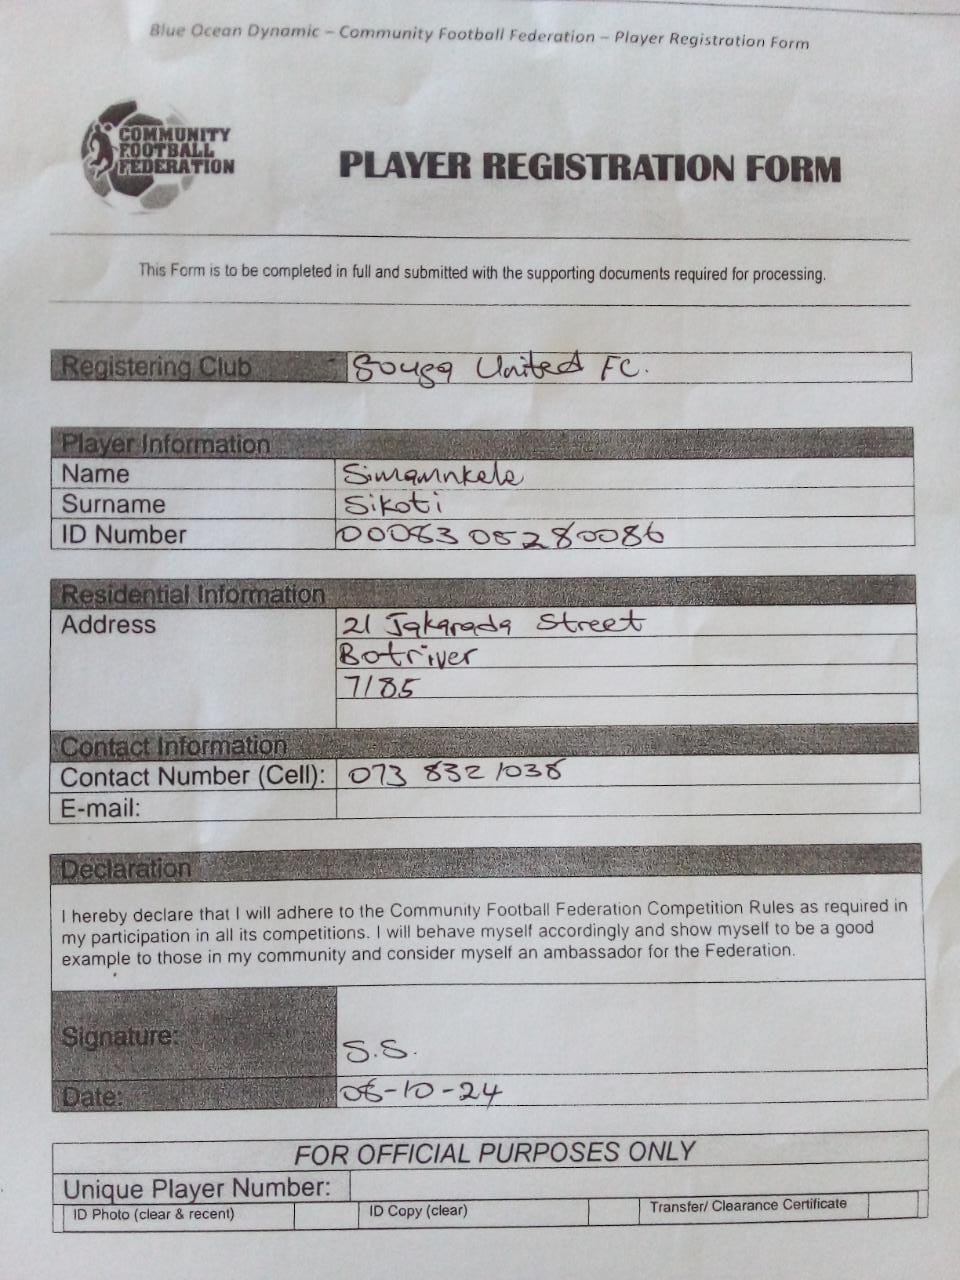 Blue Ocean Dynamic – Community Football Federation – Player Registration Form
COMMUNITY
FOOTBALL
FEDERATION
PLAYER REGISTRATION FORM
This Form is to be completed in full and submitted with the supporting documents required for processing.
Registering Club United FC.
Player Information
Name
Surname Sikoti
ID Number
Residential Information
Address 21 Jakarada Street
Botriver
7185
Contact Information
Contact Number (Cell): 073 832 1038
E-mail:
Declaration
I hereby declare that I will adhere to the Community Football Federation Competition Rules as required in
my participation in all its competitions. I will behave myself accordingly and show myself to be a good
example to those in my community and consider myself an ambassador for the Federation.
Signature: S.S.
Date:
FOR OFFICIAL PURPOSES ONLY
Unique Player Number:
ID Photo (clear & recent) ID Copy (clear) Transfer/ Clearance Certificate